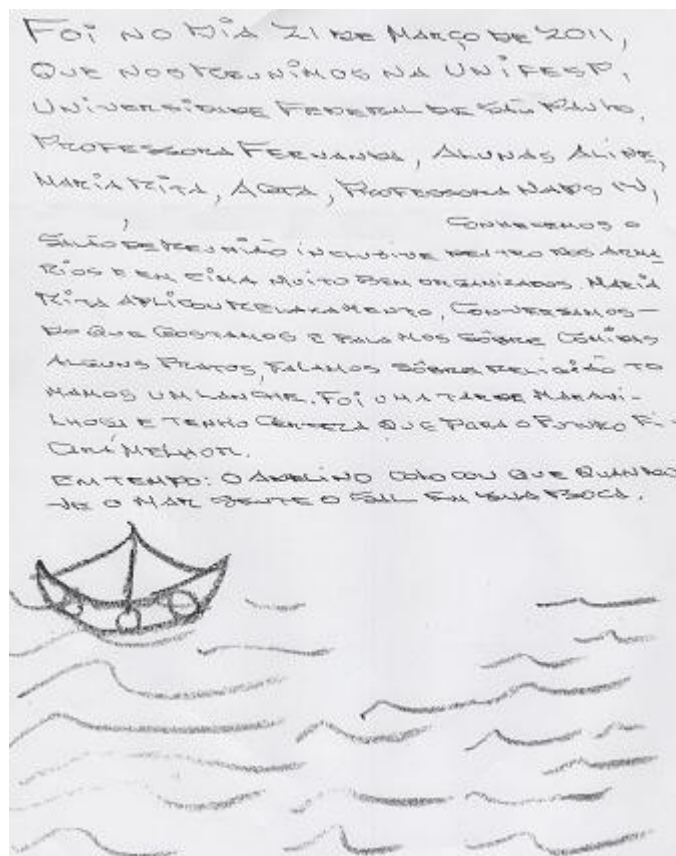 FOI NO DIA 21 DE MARÇO DE 2011,
QUE NOS REUNIMOS NA UNIFESP,
UNIVERSIDADE FEDERAL DE SÃO PAULO,
PROFESSORA FERNANDA, ALUNAS ALINE,
MARIA RITA, PROFESSORA
, CONHECEMOS O
SALÃO DE REUNIÃO INCLUSIVE DENTRO DOS ARMA
RIOS E EM CIMA MUITO BEM ORGANIZADOS. MARIA
RITA APLICOU RELAXAMENTO, CONVERSAMOS -
DO QUE GOSTAMOS E FALAMOS SÔBRE COMIDAS
ALGUNS PRATOS, FALAMOS SÔBRE RELIGIÃO TO
MAMOS UM LANCHE. FOI UMA TARDE MARAVI-
LHOSA E TENHO CERTEZA QUE PARA O FUTURO FI-
CARÁ MELHOR.
EM TEMPO: O ADELINO COLOCOU QUE QUANDO
VE O MAR SENTE O SAL EM SUA BOCA.